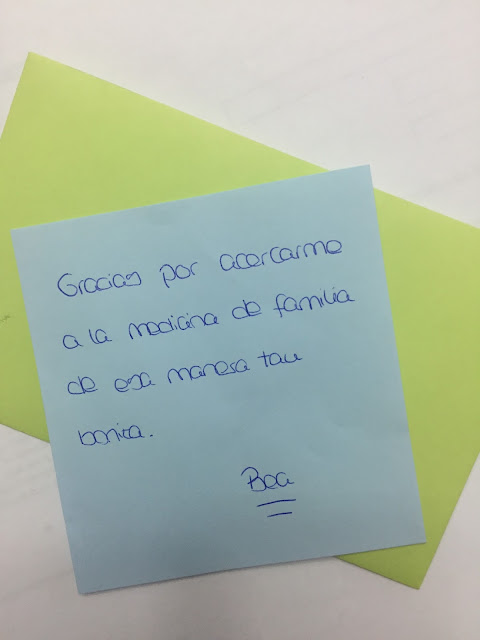 Gracias por acercarme
a la medicina de familia
de esa manera tan
bonita.
Bea